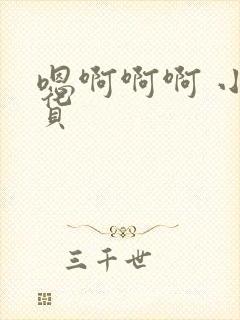 嗯啊啊啊 小
三千世